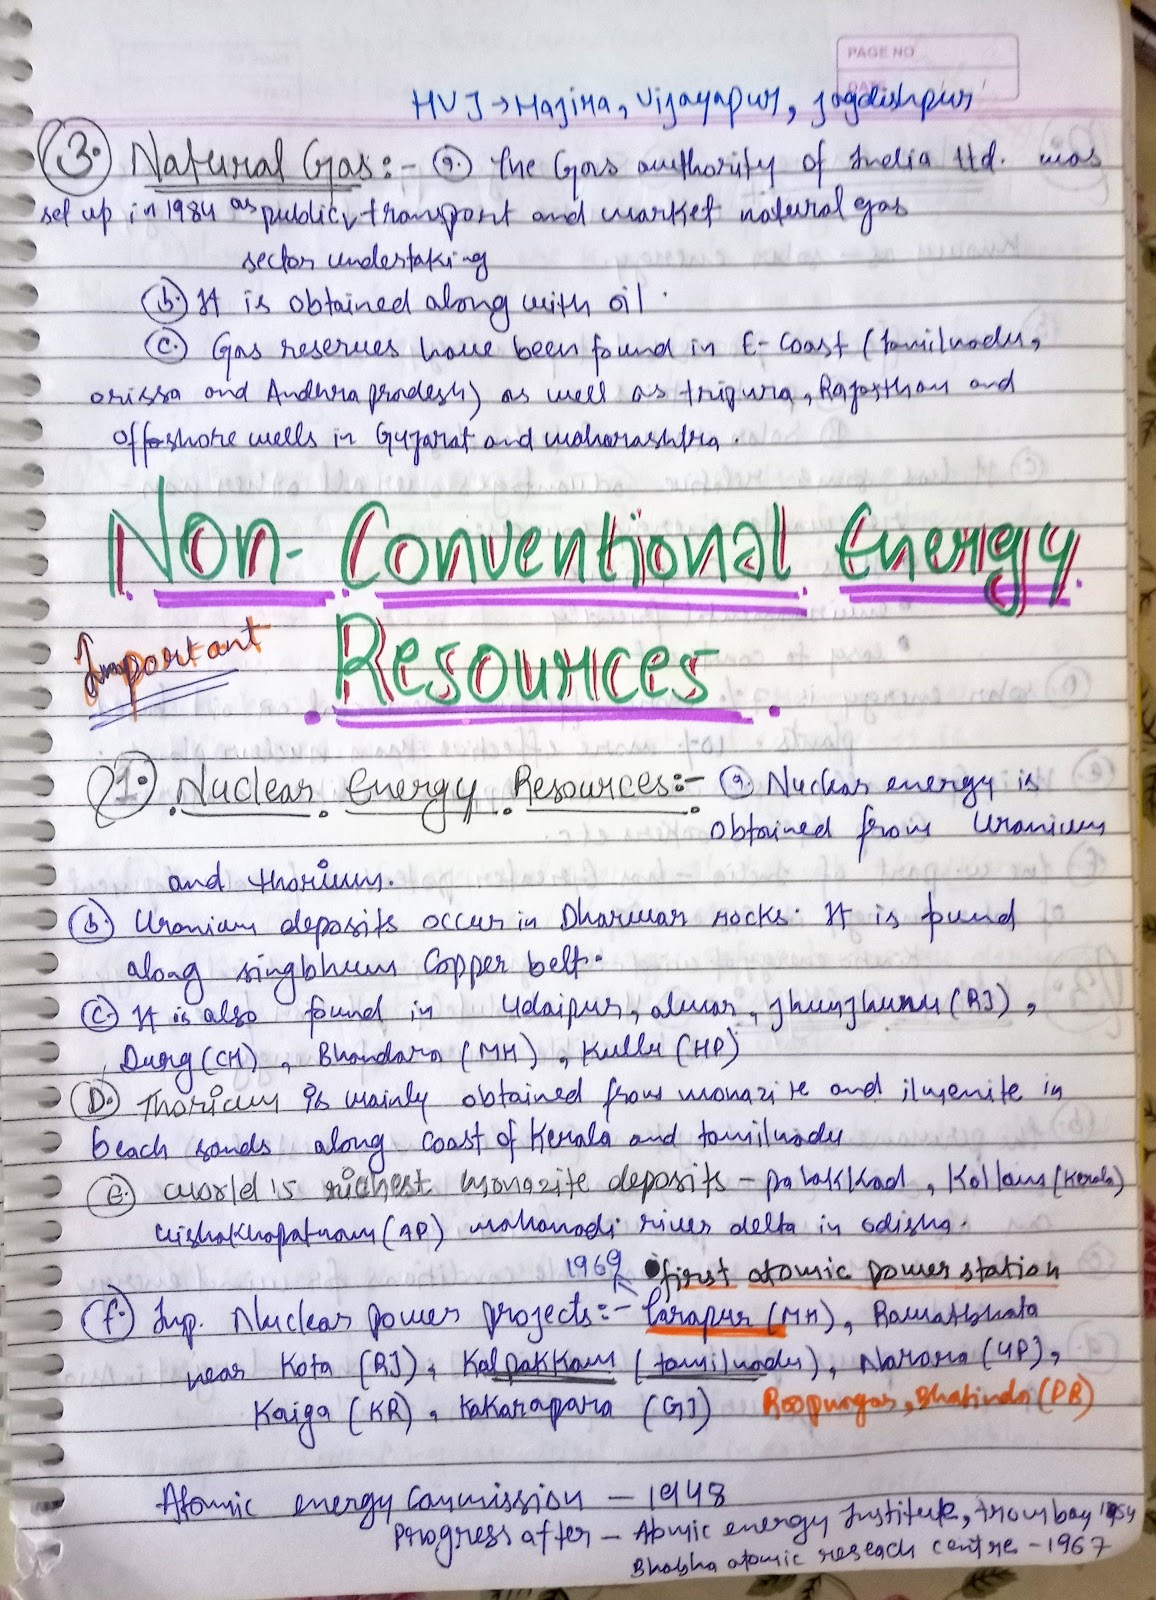 PAGE NO
DATE
HVJ → Hazira, Vijayapur, Jagdishpur
3. Natural Gas:- a. The Gas authority of India ltd. was
set up in 1984 as public transport and market natural gas
sector undertaking
b. It is obtained along with oil.
C. Gas reserves have been found in E-Coast (tamilnadu,
orissa and Andhra pradesh) as well as tripura, Rajasthan and
off-shore wells in Gujarat and maharashtra.
Non-Conventional Energy
Important
Resources
1. Nuclear Energy Resources:- a. Nuclear energy is
obtained from Uranium
and thorium.
b. Uranium deposits occur in Dharwar rocks. It is found
along singbhum Copper belt.
C. It is also found in Udaipur, alwar, Jhunjhunu (RJ),
Durg (CH), Bhandara (MH), Kullu (HP)
D. Thorium is mainly obtained from monazite and ilmenite in
beach sands along coast of Kerala and tamilnadu
e. world is richest monazite deposits - palakkad, Kollam (Kerala)
vishakhapatnam (AP) mahanadi river delta in odisha.
1969 first atomic power station
f. Imp. Nuclear power projects:- Tarapur (MH), Rawatbhata
near Kota (RJ), Kalpakkam (tamilnadu), Narora (UP),
Kaiga (KR), Kakarapara (GJ) Roopungar, Bhatinda (PB)
Atomic energy Commission - 1948
Progress after - Atomic energy Institute, Trombay 1954
Bhabha atomic reseach centre - 1967